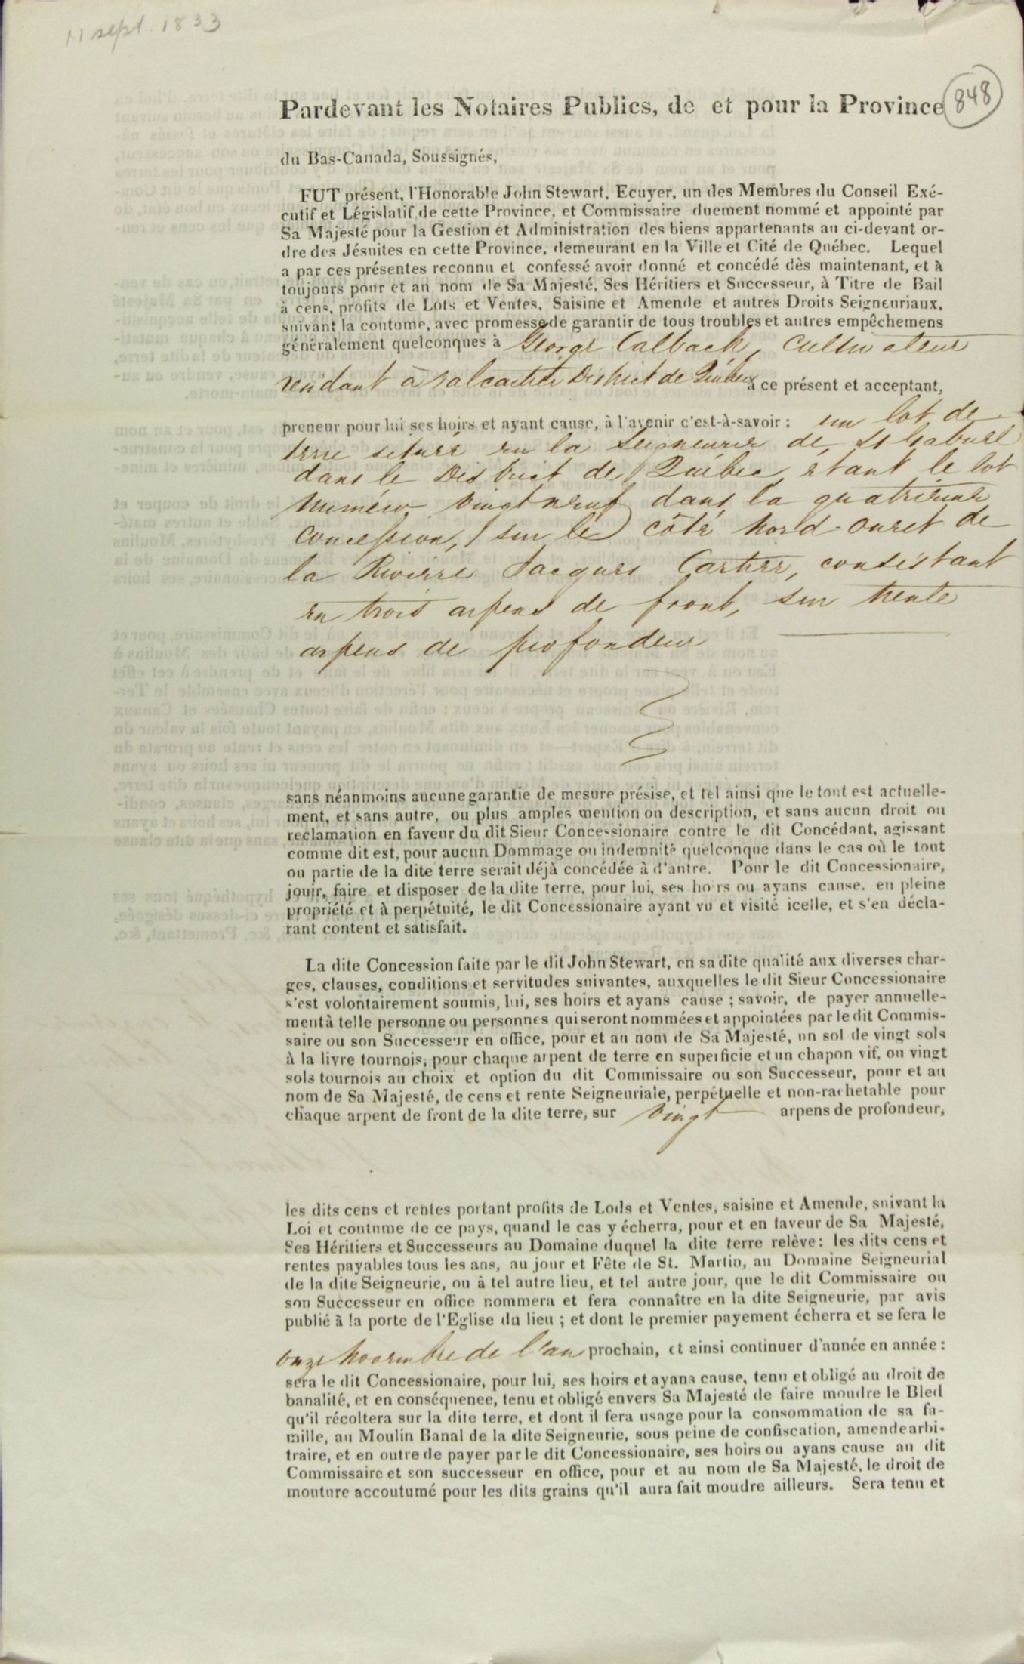 11 sept. 1833
848
Pardevant les Notaires Publics, de et pour la Province
du Bas-Canada, Soussignés,
FUT présent, l'Honorable John Stewart, Ecuyer, un des Membres du Conseil Exé-
cutif et Législatif de cette Province, et Commissaire duement nommé et appointé par
Sa Majesté pour la Gestion et Administration des biens appartenants au ci-devant or-
dre des Jésuites en cette Province, demeurant en la Ville et Cité de Québec. Lequel
a par ces présentes reconnu et confessé avoir donné et concédé dès maintenant, et à
toujours pour et au nom de Sa Majesté, Ses Héritiers et Successeur, à Titre de Bail
à cens, profits de Lots et Ventes, Saisine et Amende et autres Droits Seigneuriaux,
suivant la coutume, avec promesse de garantir de tous troubles et autres empêchemens
généralement quelconques à George Calback, Cultivateur
résidant à Valcartier District de Québec à ce présent et acceptant,
preneur pour lui ses hoirs et ayant cause, à l'avenir c'est-à-savoir : un lot de
terre situé en la Seigneurie de St Gabriel
dans le District de Québec, étant le lot
numéro vingt neuf dans la quatrième
Concession, sur le côté nord-ouest de
la Rivière Jacques Cartier, consistant
en trois arpens de front, sur trente
arpens de profondeur
sans néanmoins aucune garantie de mesure présise, et tel ainsi que le tout est actuelle-
ment, et sans autre, ou plus amples mention ou description, et sans aucun droit ou
reclamation en faveur du dit Sieur Concessionaire contre le dit Concédant, agissant
comme dit est, pour aucun Dommage ou indemnité quelconque dans le cas où le tout
ou partie de la dite terre serait déjà concédée à d'autre. Pour le dit Concessionaire,
jouir, faire et disposer de la dite terre, pour lui, ses hoirs ou ayans cause, en pleine
propriété et à perpétuité, le dit Concessionaire ayant vu et visité icelle, et s'en décla-
rant content et satisfait.
La dite Concession faite par le dit John Stewart, en sa dite qualité aux diverses char-
ges, clauses, conditions et servitudes suivantes, auxquelles le dit Sieur Concessionaire
s'est volontairement soumis, lui, ses hoirs et ayans cause ; savoir, de payer annuelle-
ment à telle personne ou personnes qui seront nommées et appointées par le dit Commis-
saire ou son Successeur en office, pour et au nom de Sa Majesté, un sol de vingt sols
à la livre tournois, pour chaque arpent de terre en superficie et un chapon vif, ou vingt
sols tournois au choix et option du dit Commissaire ou son Successeur, pour et au
nom de Sa Majesté, de cens et rente Seigneuriale, perpétuelle et non-rachetable pour
chaque arpent de front de la dite terre, sur vingt arpens de profondeur,
les dits cens et rentes portant profits de Lods et Ventes, saisine et Amende, suivant la
Loi et coutume de ce pays, quand le cas y écherra, pour et en faveur de Sa Majesté,
Ses Héritiers et Successeurs au Domaine duquel la dite terre relève : les dits cens et
rentes payables tous les ans, au jour et Fête de St. Martin, au Domaine Seigneurial
de la dite Seigneurie, ou à tel autre lieu, et tel autre jour, que le dit Commissaire ou
son Successeur en office nommera et fera connaître en la dite Seigneurie, par avis
publié à la porte de l'Eglise du lieu ; et dont le premier payement écherra et se fera le
onze novembre de l'an prochain, et ainsi continuer d'année en année :
sera le dit Concessionaire, pour lui, ses hoirs et ayans cause, tenu et obligé au droit de
banalité, et en conséquence, tenu et obligé envers Sa Majesté de faire moudre le Bled
qu'il récoltera sur la dite terre, et dont il fera usage pour la consommation de sa fa-
mille, au Moulin Banal de la dite Seigneurie, sous peine de confiscation, amende arbi-
traire, et en outre de payer par le dit Concessionaire, ses hoirs ou ayans cause au dit
Commissaire et son successeur en office, pour et au nom de Sa Majesté, le droit de
mouture accoutumé pour les dits grains qu'il aura fait moudre ailleurs. Sera tenu et